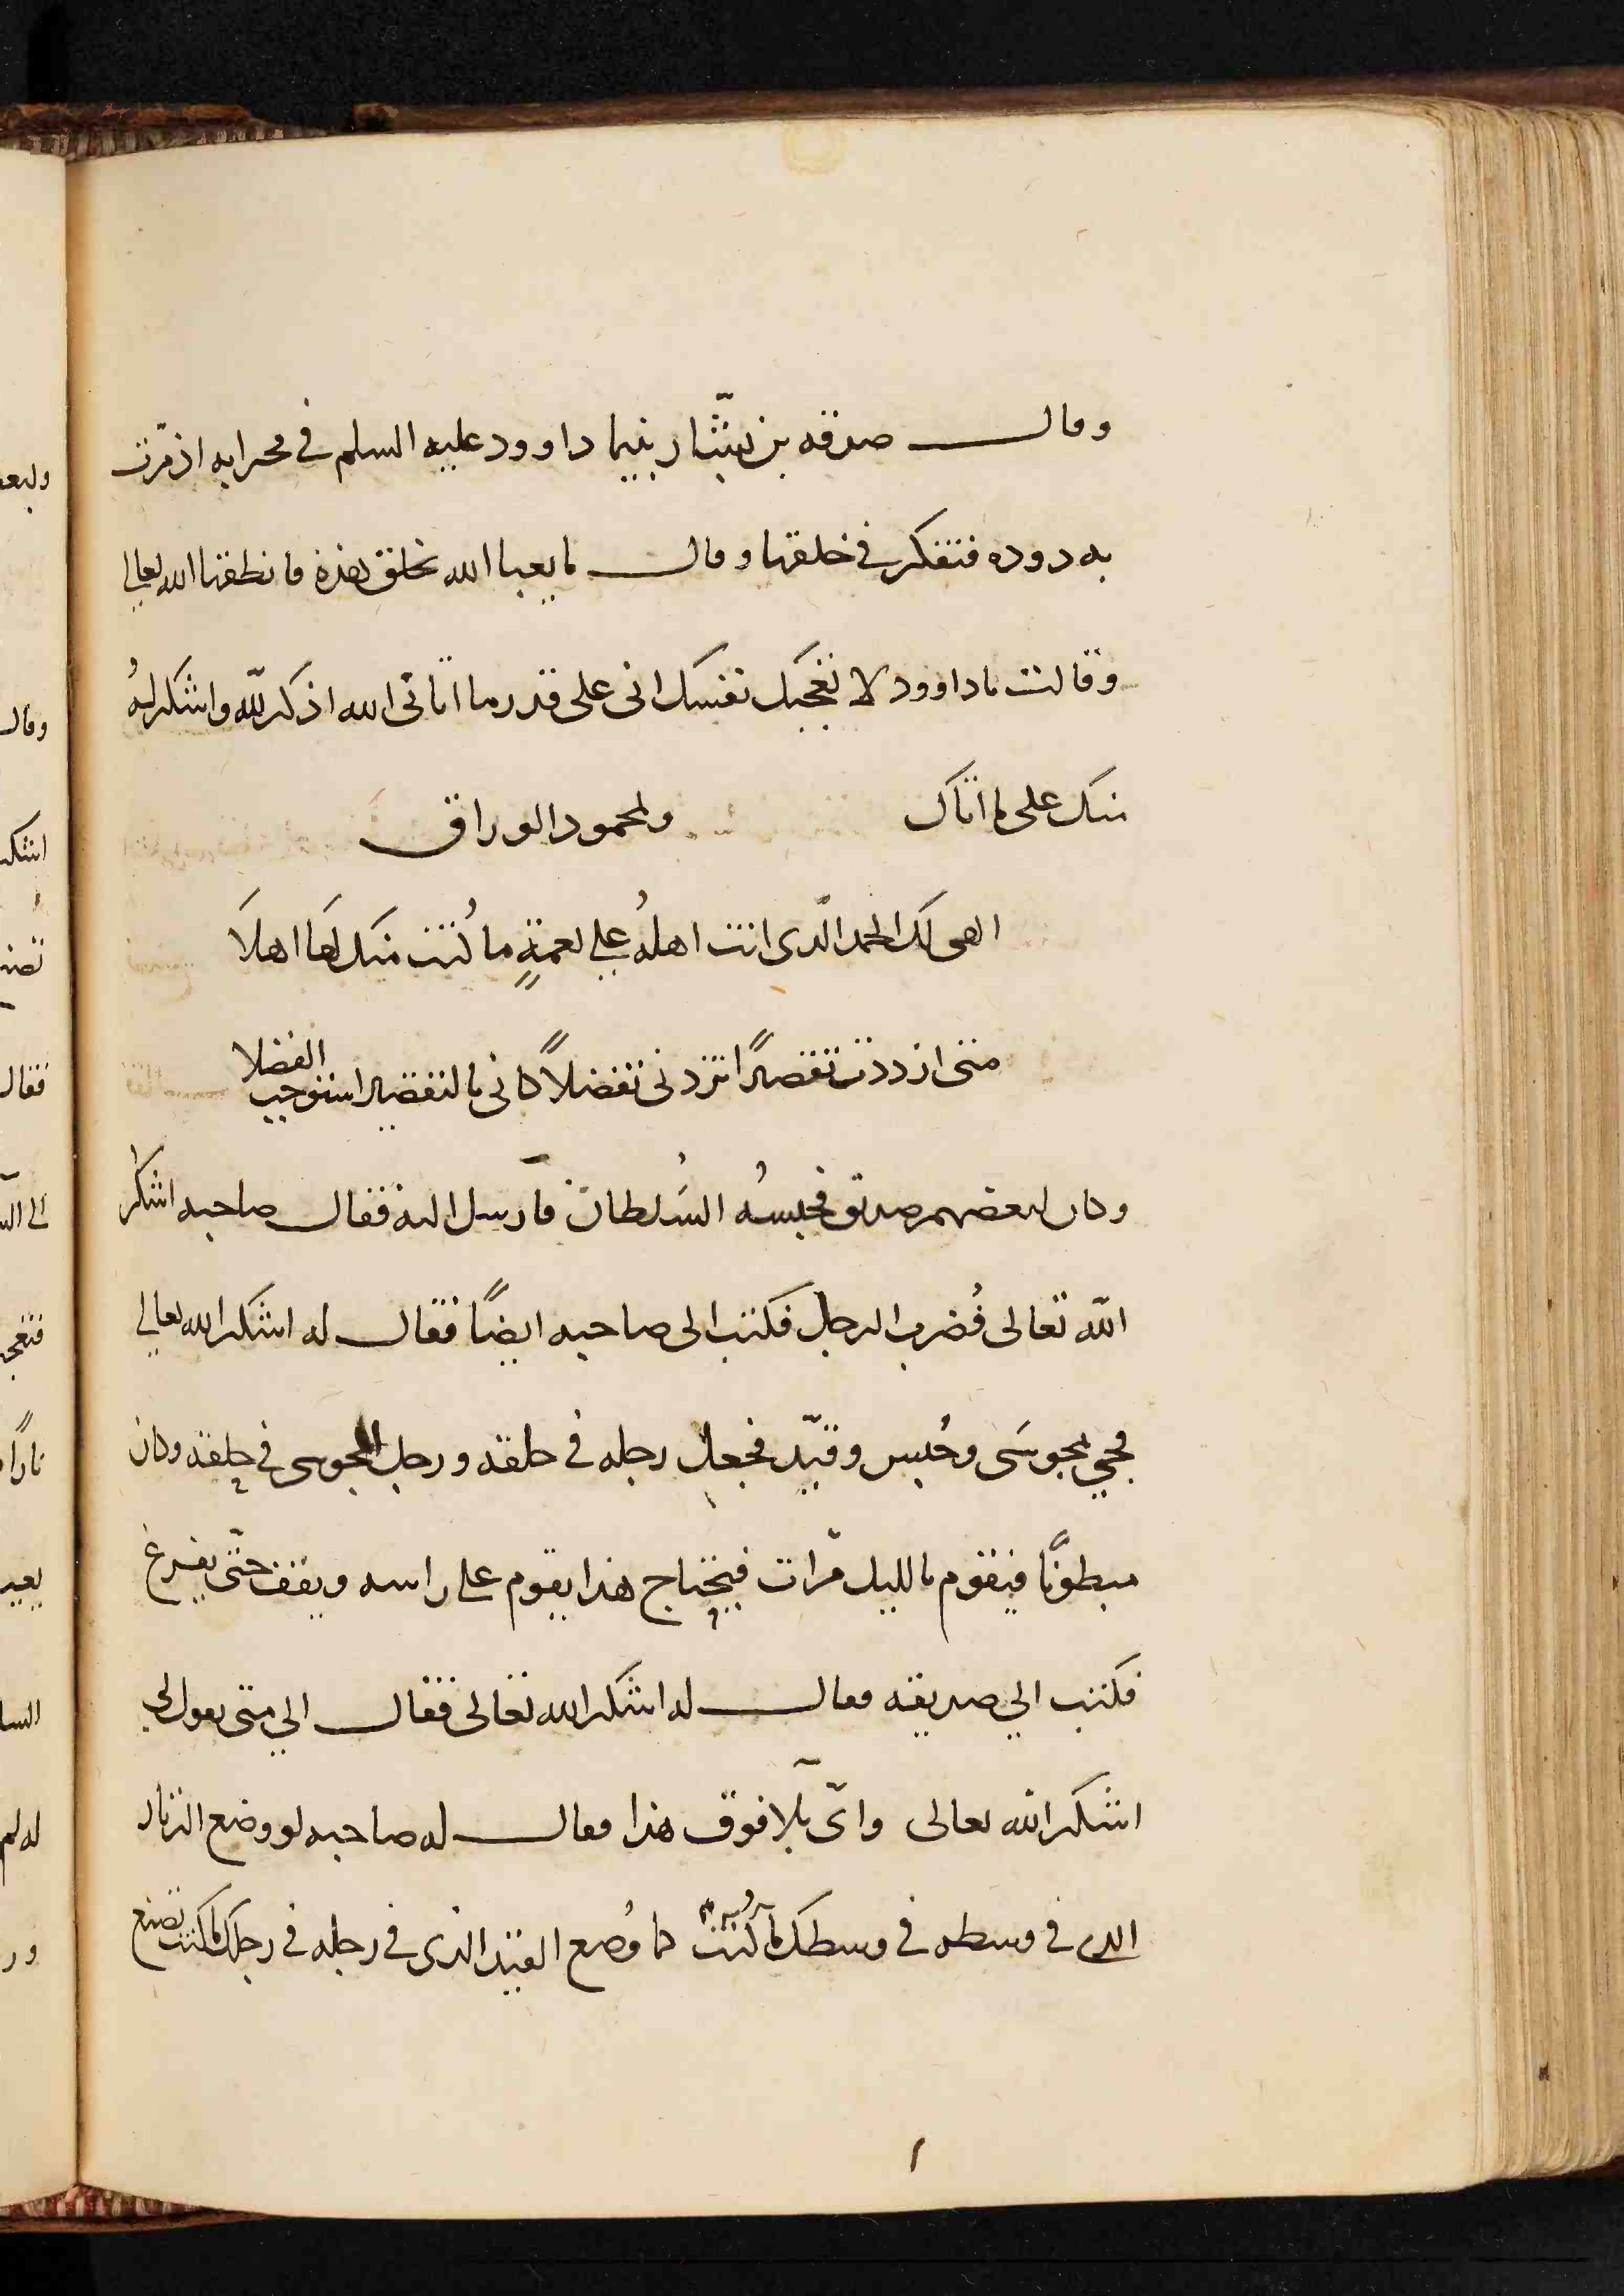 وقال صدقه بن يسّار بينما داوود عليه السلم في محرابه اذ مرّت
به دوده فتفكر في خلقتها وقال ما يعبا الله بخلق هذه فانطقها الله تعالى
وقالت يا داوود لا تعجبك نفسك انى على قدر ما اتانى الله اذكر لله واشكر لهُ
منك على ما اتاك ولمحمود الوراق
الهى لك الحمد الّذى انت اهلهُ على نعمةٍ ما كُنت منك لهَا اهلَا
متى ازددت تقصيرًا تزدنى تفضلاً كانى بالتقصير استوجب الفضلا
وكان لبعضهم صديق فحبسهُ السُلطان فارسل اليه فقال صاحبه اشكر
الله تعالى فُضرب الرجل فكتب الى صاحبه ايضًا فقال له اشكر الله تعالى
فجي بمجوسَى وحُبس وقيّد فجعل رجله فى حلقه ورجل المجوسى في حلقه وكان
مبطونًا فيقوم بالليل مرّات فيحتاج هذا يقوم على راسه ويقف حتّى يفرغ
فكتب الي صديقه فقال له اشكر الله تعالى فقال الي متى تقول لي
اشكر الله تعالى واىّ بلآ فوق هذا فقال له صاحبه لو وضع الزنار
الذى في وسطه في وسطك ما كُنت كما وُضع القيد الذى في رجله في رجلك ما كنت تصنع